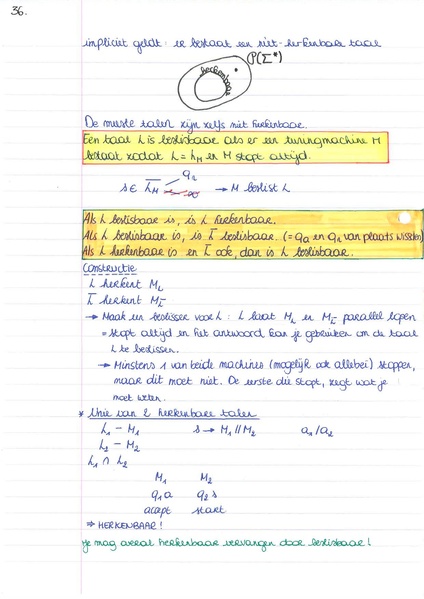 36.
impliciet geldt: er bestaat een niet-herkenbare taal
P(Σ*)
herkenbaar
De meeste talen zijn zelfs niet herkenbaar.
Een taal L is beslisbaar als er een turingmachine M
bestaat zodat L = L_M en M stopt altijd.
q_r
s ∈ L̅_M → M beslist L
Als L beslisbaar is, is L herkenbaar.
Als L beslisbaar is, is L̅ beslisbaar. (= q_a en q_r van plaats wisselen)
Als L herkenbaar is en L̅ ook, dan is L beslisbaar.
Constructie
L herkent M_L
L̅ herkent M_L̅
→ Maak een beslisser voor L: L laat M_L en M_L̅ parallel lopen
= stopt altijd en het antwoord kan je gebruiken om de taal
L te beslissen.
→ Minstens 1 van beide machines (mogelijk ook allebei) stoppen,
maar dit moet niet. De eerste die stopt, zegt wat je
moet weten.
* Unie van 2 herkenbare talen
L₁ - M₁ s → M₁ // M₂ a₁/a₂
L₂ - M₂
L₁ ∩ L₂
M₁ M₂
q₁a q₂s
accept start
⇒ HERKENBAAR!
Je mag overal herkenbaar vervangen door beslisbaar!